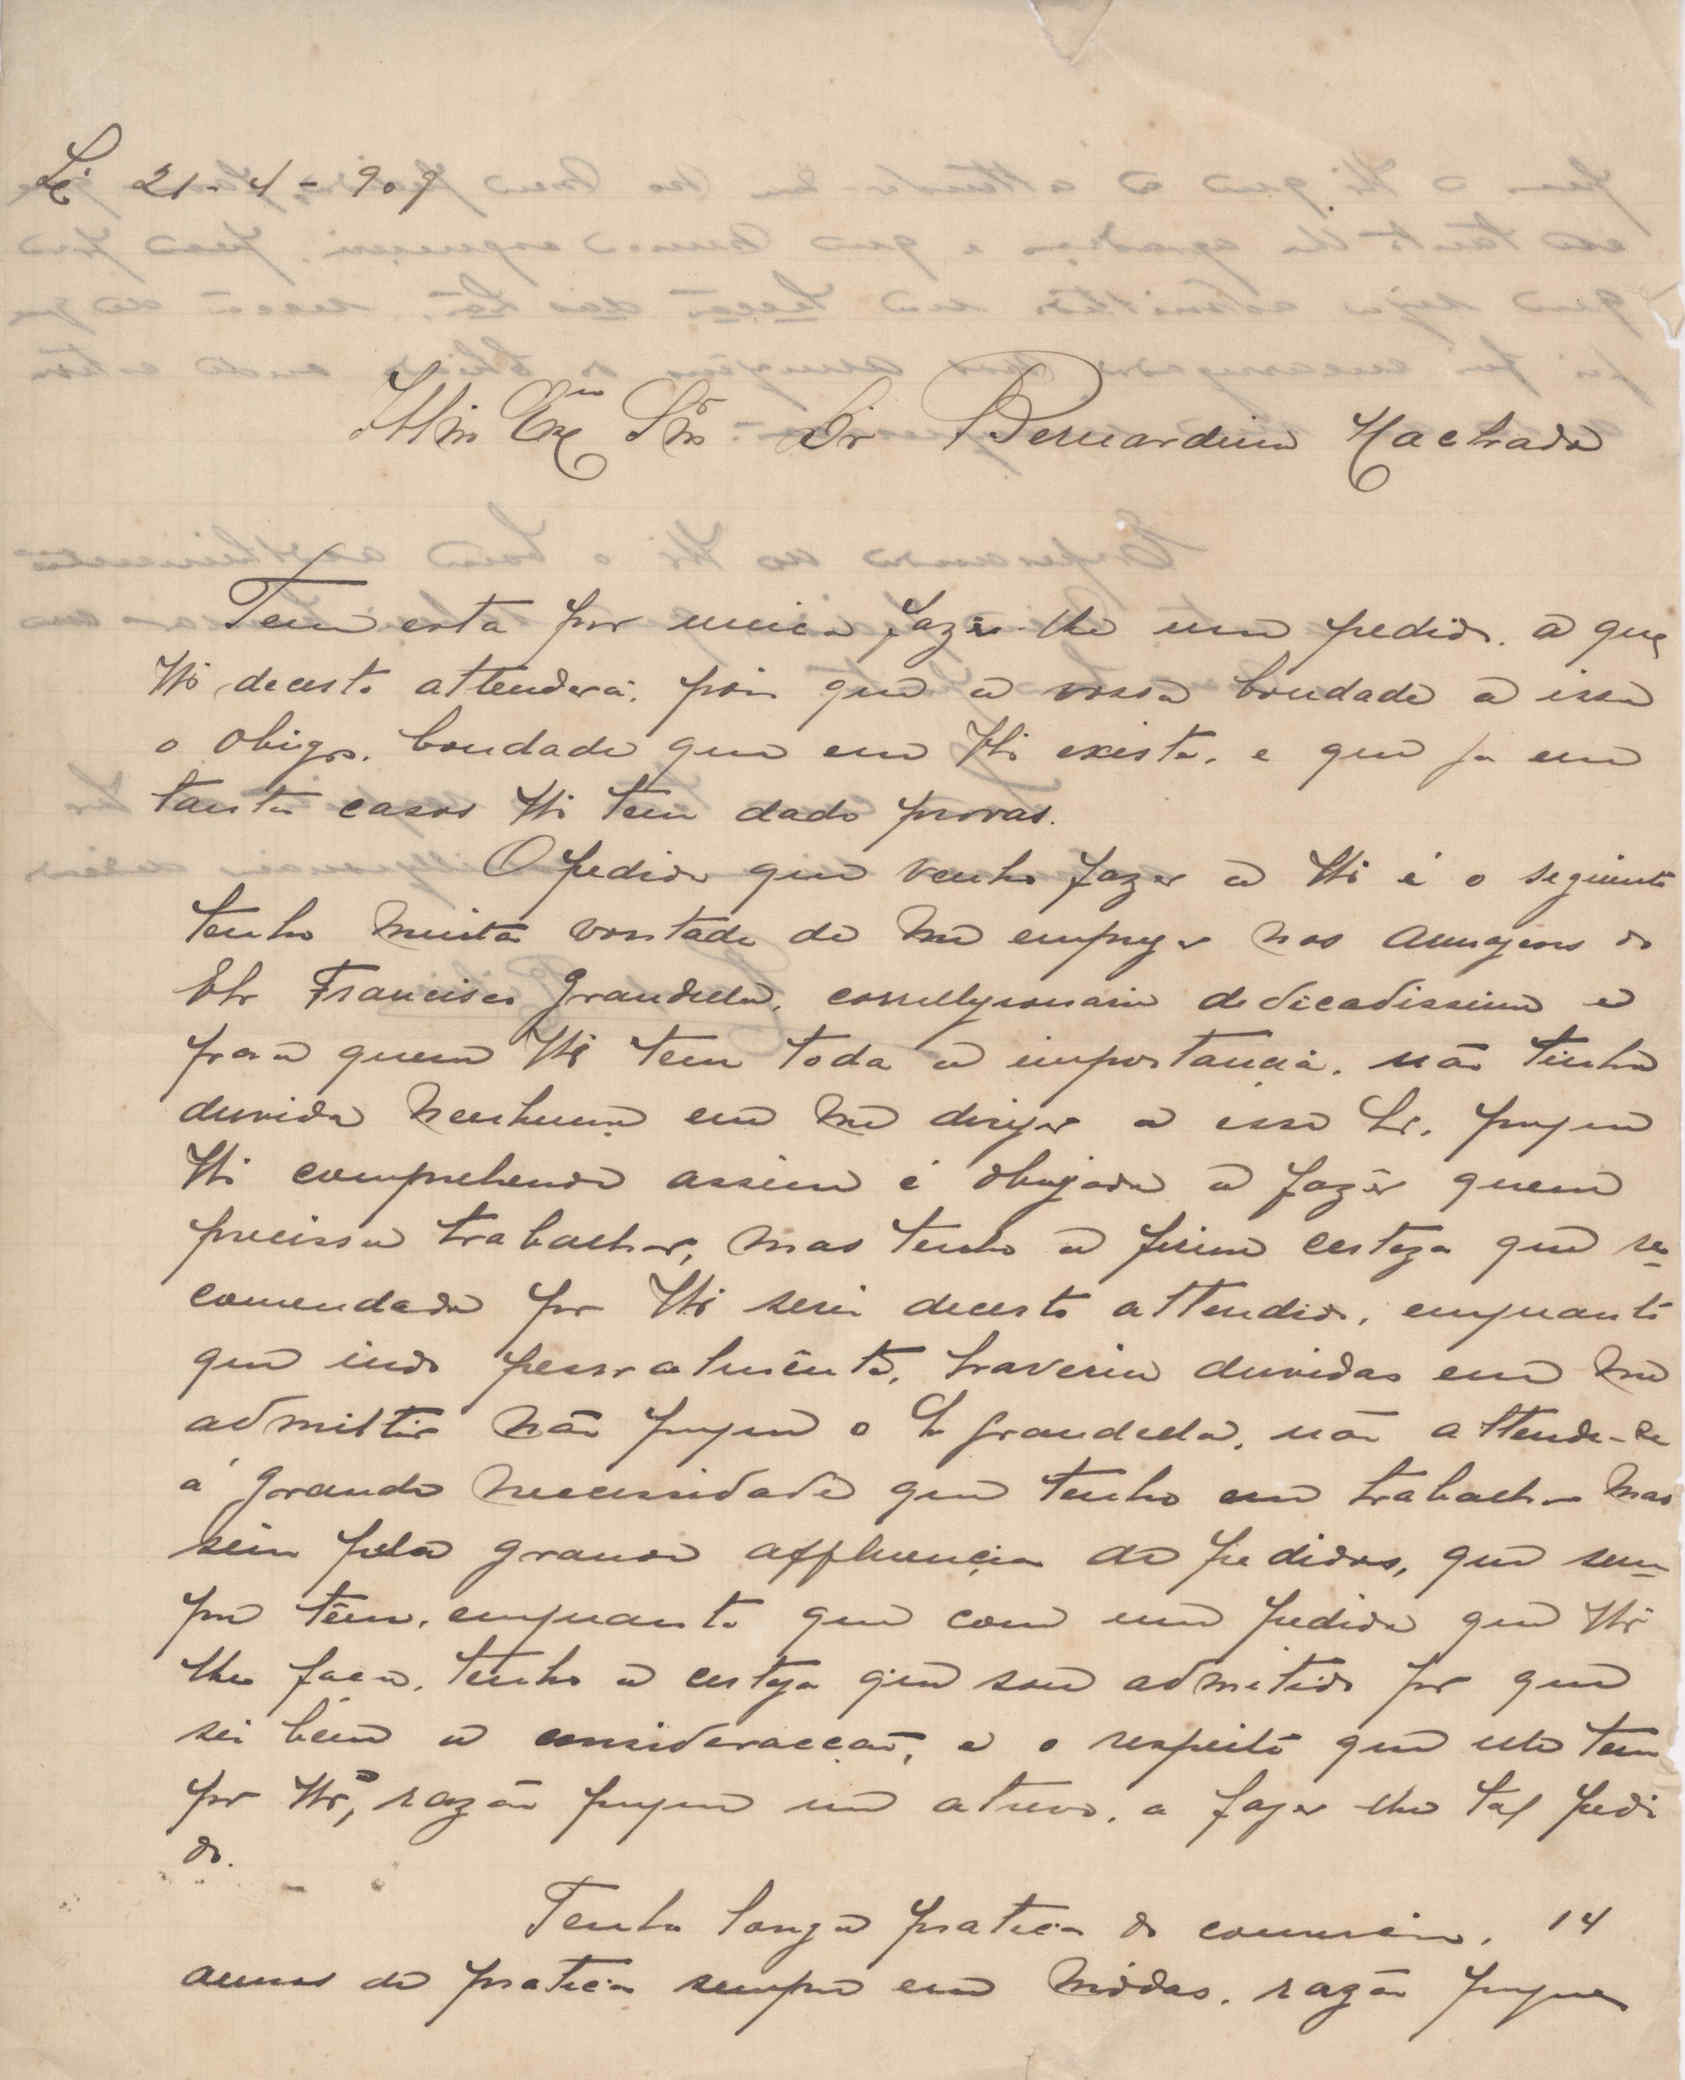 Lx 21-4-909
Illmo Exmo Snr Dr Bernardino Machado
Tem esta por unico fazer-lhe um pedido. a que
decerto attenderá. pois que a vossa bondade a isso
o obriga. bondade que em existe. e que ja em
tantos casos tem dado provas.
O pedido que venho fazer a é o seguinte
tenho muita vontade de me empregar nos Armazens do
Sr Francisco Grandella. correlligionario dedicadissimo e
para quem tem toda a importancia. não tinha
duvida nenhuma em me dirigir a esse Sr. porque
comprehende assim é obrigado a fazêr quem
precissa trabalhar, mas tenho a firme certeza que re-
comendado por serei decerto attendido. emquanto
que indo pessoalmente, haveria duvidas em me
admittir não porque o Sr Grandella. não attende-se
á grande necessidade que tenho em trabalhar mas
sim pela grande affluencia de pedidos, que sem-
pre têm. emquanto que com um pedido que
lhe faça. tenho a certeza que sou admitido por que
sei bem a consideracção, e o respeito que elle tem
por razão porque me atrevo. a fazer lhe tal pedi
do.
Tenho longa pratica do commercio. 14
annos de pratica sempre em módas. razão porque